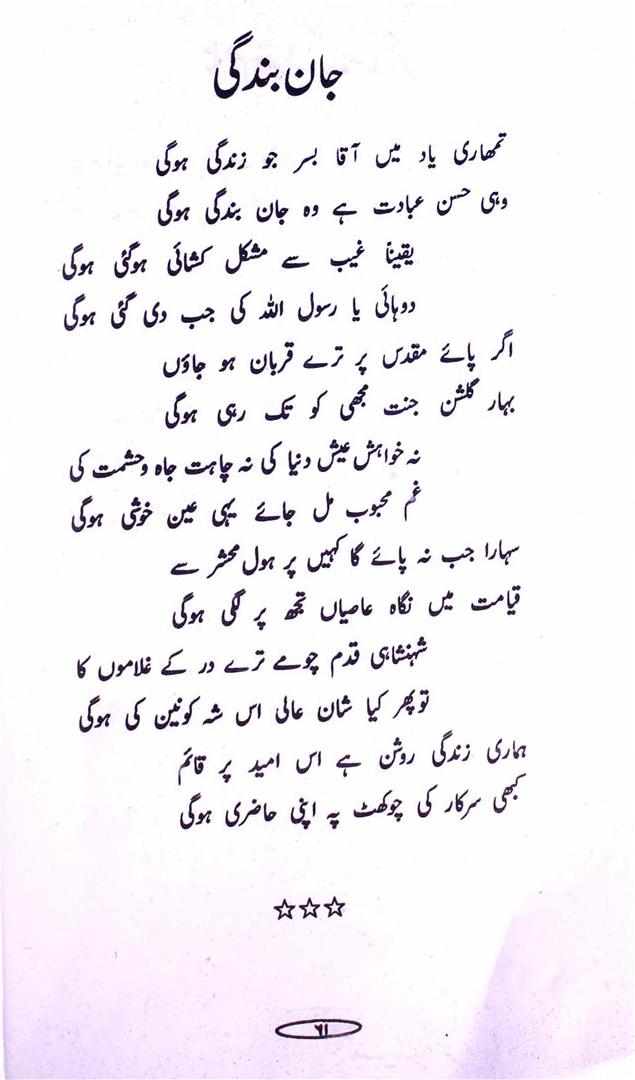 جان بندگی
تمھاری یاد میں آقا بسر جو زندگی ہوگی
وہی حسن عبادت ہے وہ جان بندگی ہوگی
یقیناً غیب سے مشکل کشائی ہوگئی ہوگی
دوہائی یا رسول اللہ کی جب دی گئی ہوگی
اگر پائے مقدس پر ترے قربان ہو جاؤں
بہار گلشن جنت مجھی کو تک رہی ہوگی
نہ خواہش عیش دنیا کی نہ چاہت جاہ و حشمت کی
غم محبوب مل جائے یہی عین خوشی ہوگی
سہارا جب نہ پائے گا کہیں پر ہول محشر سے
قیامت میں نگاہ عاصیاں تجھ پر لگی ہوگی
شہنشاہی قدم چومے ترے در کے غلاموں کا
تو پھر کیا شان عالی اس شہ کونین کی ہوگی
ہماری زندگی روشن ہے اس امید پر قائم
کبھی سرکار کی چوکھٹ پہ اپنی حاضری ہوگی
☆☆☆
۶۱